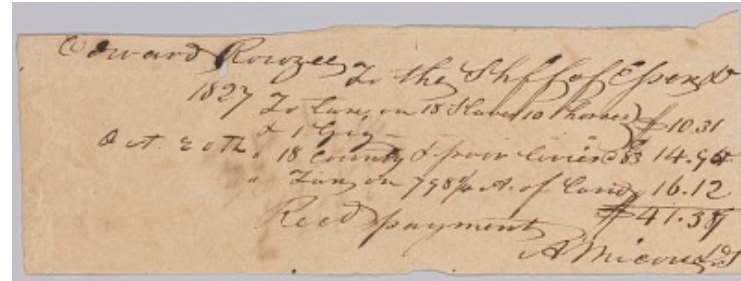 Edward Rowzee To the Shff of Essex Dr
1827 To tax on 18 Slaves 10 horses
& 1 Gig — $10.31
Oct. 20th " 18 County & poor levies @ 83 14.94
" Tax on 798¾ A. of land 16.12
$41.37
Recd payment
A Micou DS